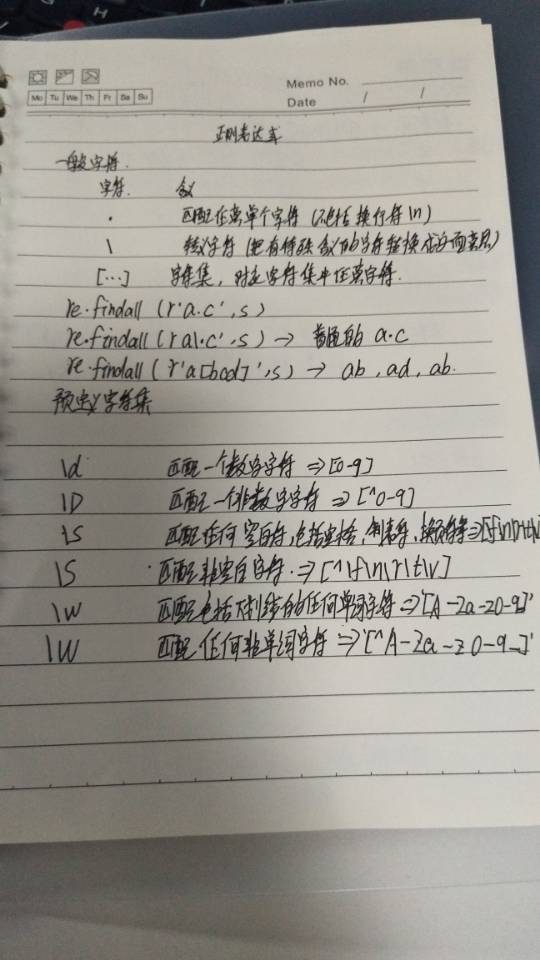 Memo No.
Mo Tu We Th Fr Sa Su
Date / /
正则表达式
一般字符.
字符. 含义
. 匹配任意单个字符 (不包括换行符 \n)
\ 转义字符 (把有特殊含义的字符转换成字面意思)
[...] 字符集, 对应字符集中任意字符.
re.findall (r'a.c', s)
re.findall (r'a\.c', s) → 普通的 a.c
re.findall (r'a[bcd]', s) → ab, ad, ab.
预定义字符集
\d 匹配一个数字字符 ⇒ [0-9]
\D 匹配一个非数字字符 ⇒ [^0-9]
\s 匹配任何空白符, 包括空格, 制表符, 换页符等 ⇒ [\f\n\r\t\v]
\S 匹配非空白字符. ⇒ [^\f\n\r\t\v]
\w 匹配包括下划线的任何单词字符 ⇒ '[A-Za-z0-9_]'
\W 匹配任何非单词字符 ⇒ '[^A-Za-z0-9_]'